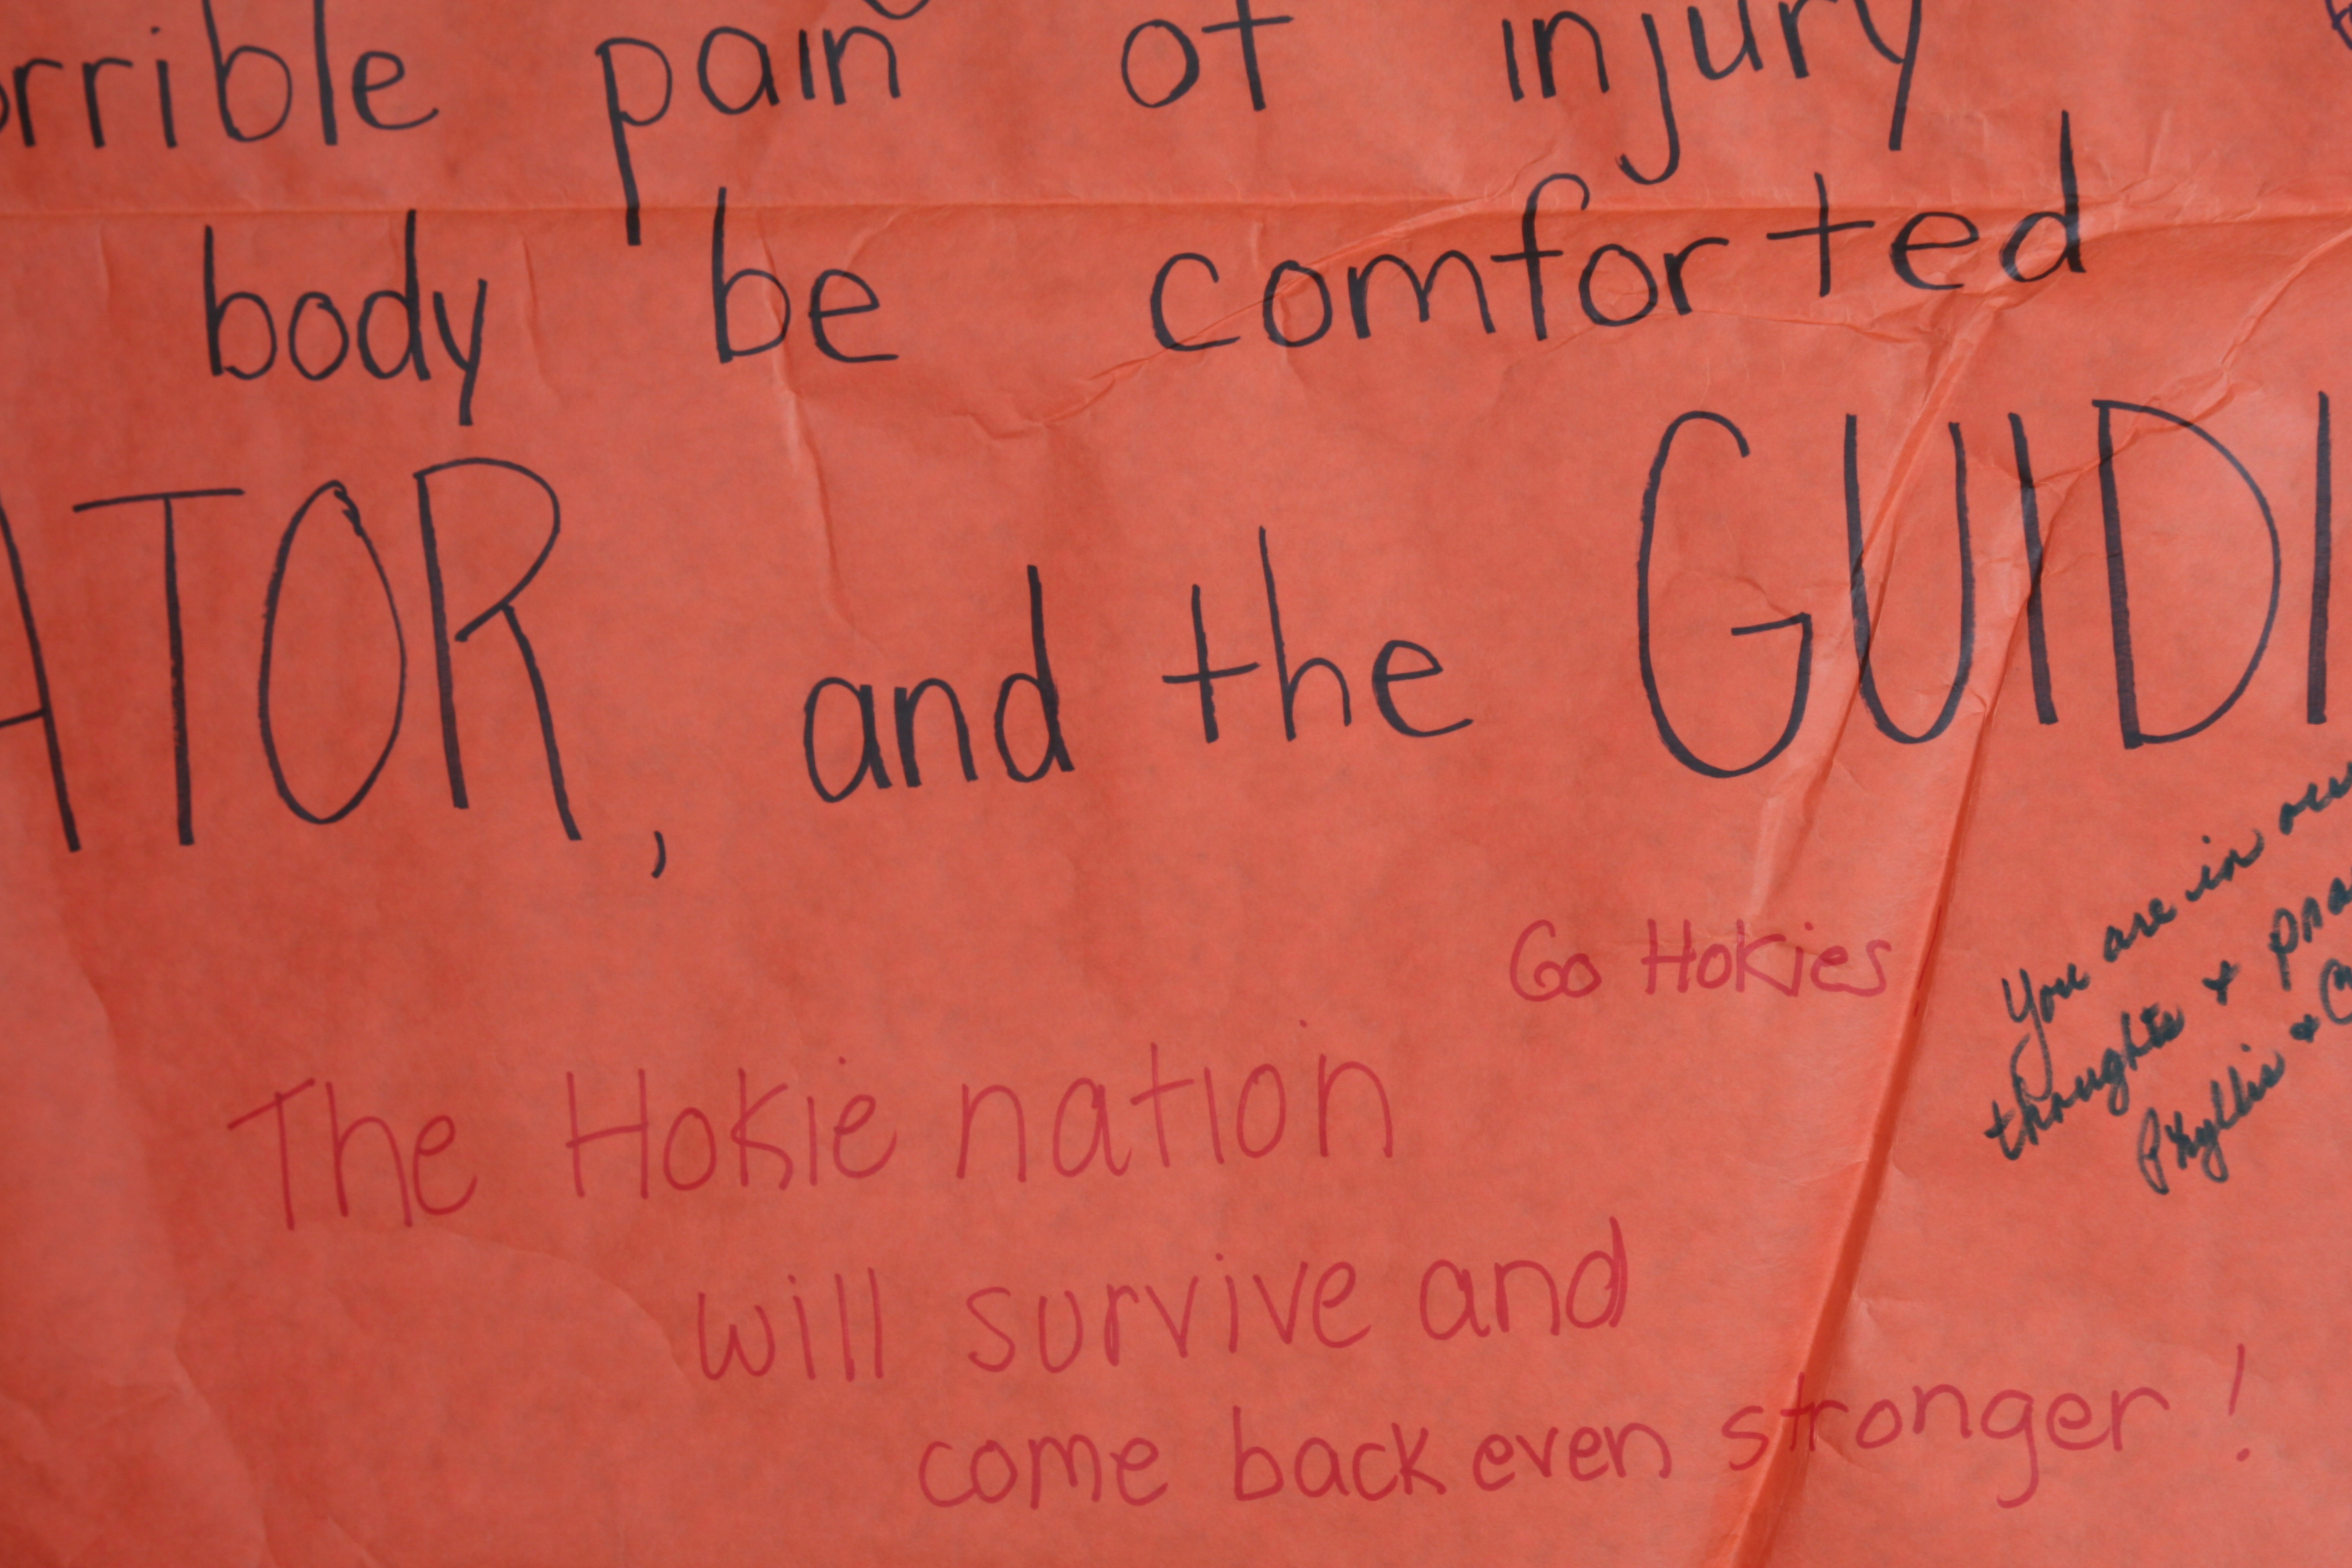 orrible pain of injury
body be comforted
ATOR, and the GUIDI
Go Hokies
The Hokie nation
will survive and
come back even stronger!
You are in our
thoughts + pra
Phyllis +